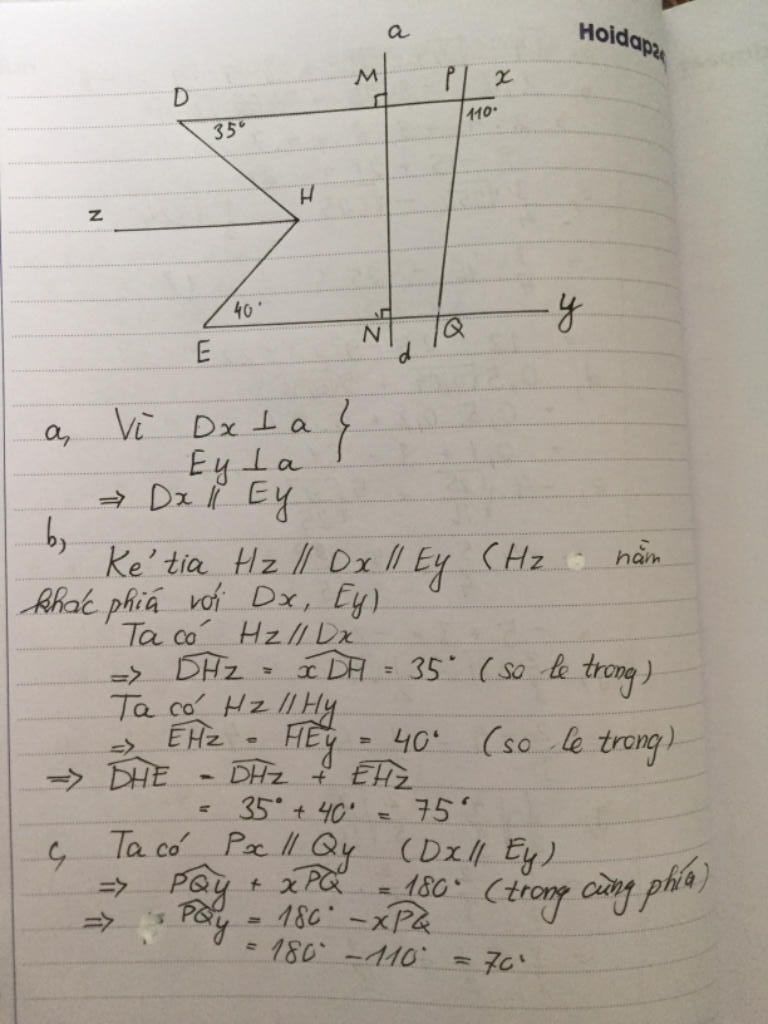 Hoidap24
a
M
P
x
D
35°
110°
H
z
40°
y
N
Q
E
d
a, Vì Dx ⊥ a }
Ey ⊥ a
⇒ Dx // Ey
b,
Kẻ tia Hz // Dx // Ey (Hz nằm
khác phía với Dx, Ey)
Ta có Hz // Dx
⇒ DHz = xDH = 35° (so le trong)
Ta có Hz // Hy
⇒ EHz = HEy = 40° (so le trong)
⇒ DHE = DHz + EHz
= 35° + 40° = 75°
c, Ta có Px // Qy (Dx // Ey)
⇒ PQy + xPQ = 180° (trong cùng phía)
⇒ PQy = 180° - xPQ
= 180° - 110° = 70°